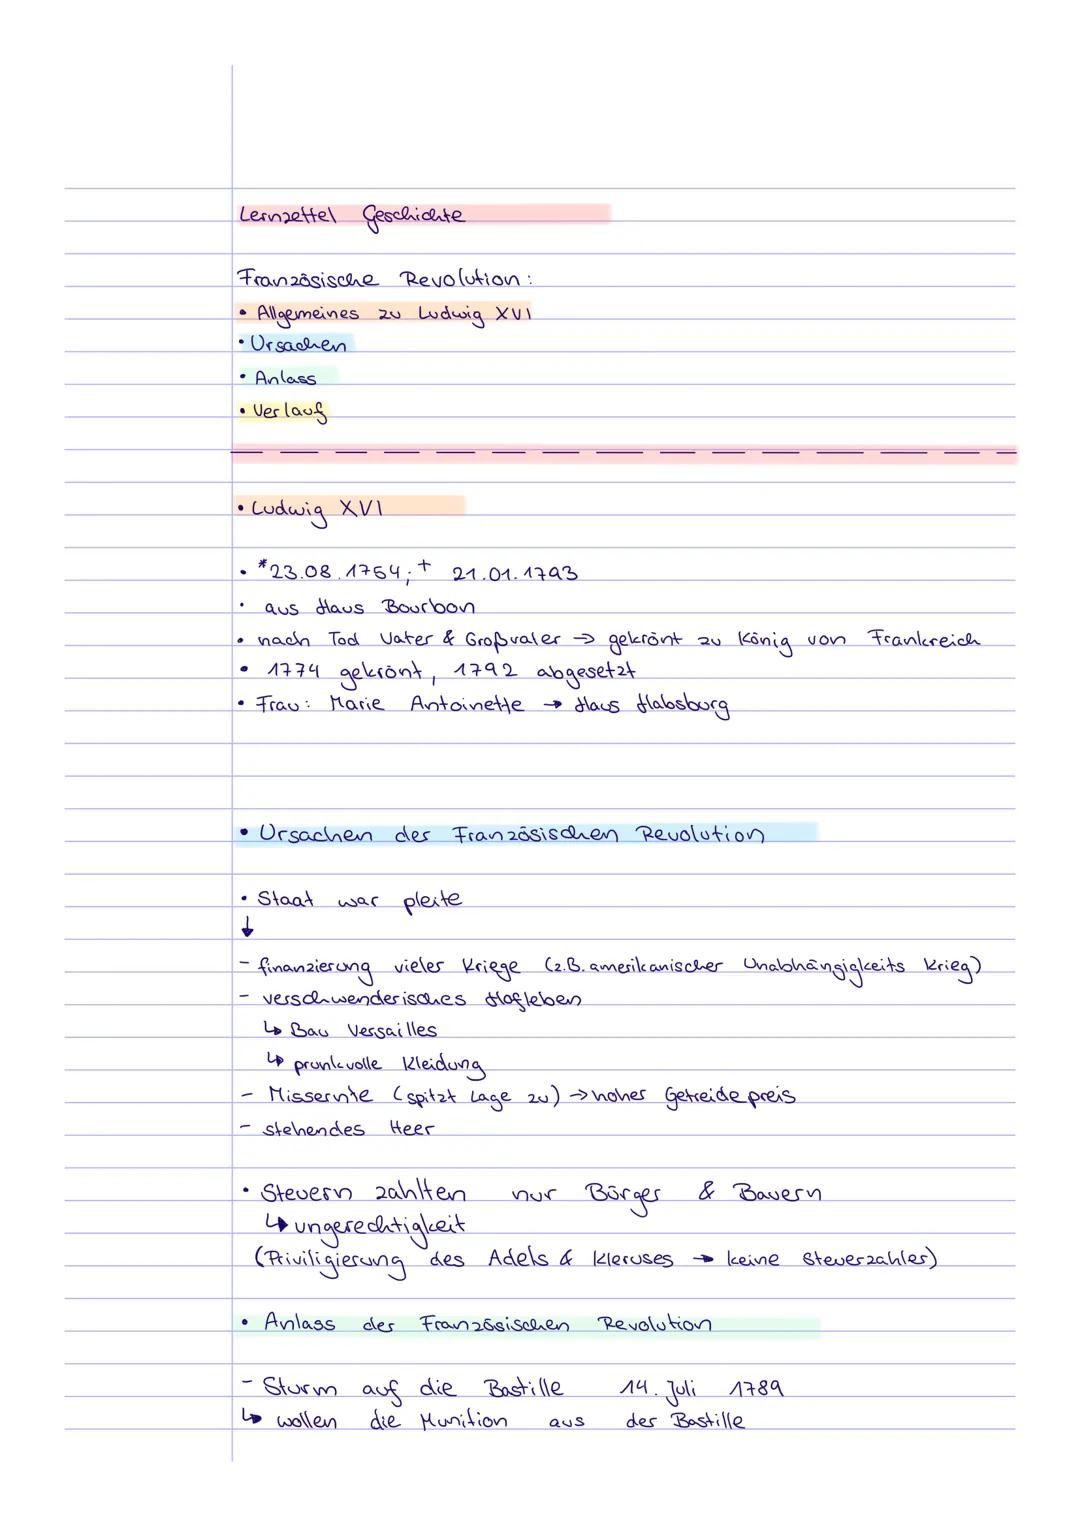 Lernzettel Geschichte
Französische Revolution:
• Allgemeines zu Ludwig XVI
• Ursachen
• Anlass
• Verlauf
• Ludwig XVI
• *23.08.1754; + 21.01.1793
• aus Haus Bourbon
• nach Tod Vater & Großvater → gekrönt zu König von Frankreich
• 1774 gekrönt, 1792 abgesetzt
• Frau: Marie Antoinette → Haus Habsburg
• Ursachen der Französischen Revolution
• Staat war pleite
↓
- finanzierung vieler Kriege (z.B. amerikanischer Unabhängigkeits Krieg)
- verschwenderisches Hofleben
↳ Bau Versailles
↳ prunkvolle Kleidung
- Missernte (spitzt Lage zu) → hoher Getreidepreis
- stehendes Heer
• Steuern zahlten nur Bürger & Bauern
↳ ungerechtigkeit
(Priviligierung des Adels & Kleruses → keine Steuerzahler)
• Anlass der Französischen Revolution
- Sturm auf die Bastille 14. Juli 1789
↳ wollen die Munition aus der Bastille